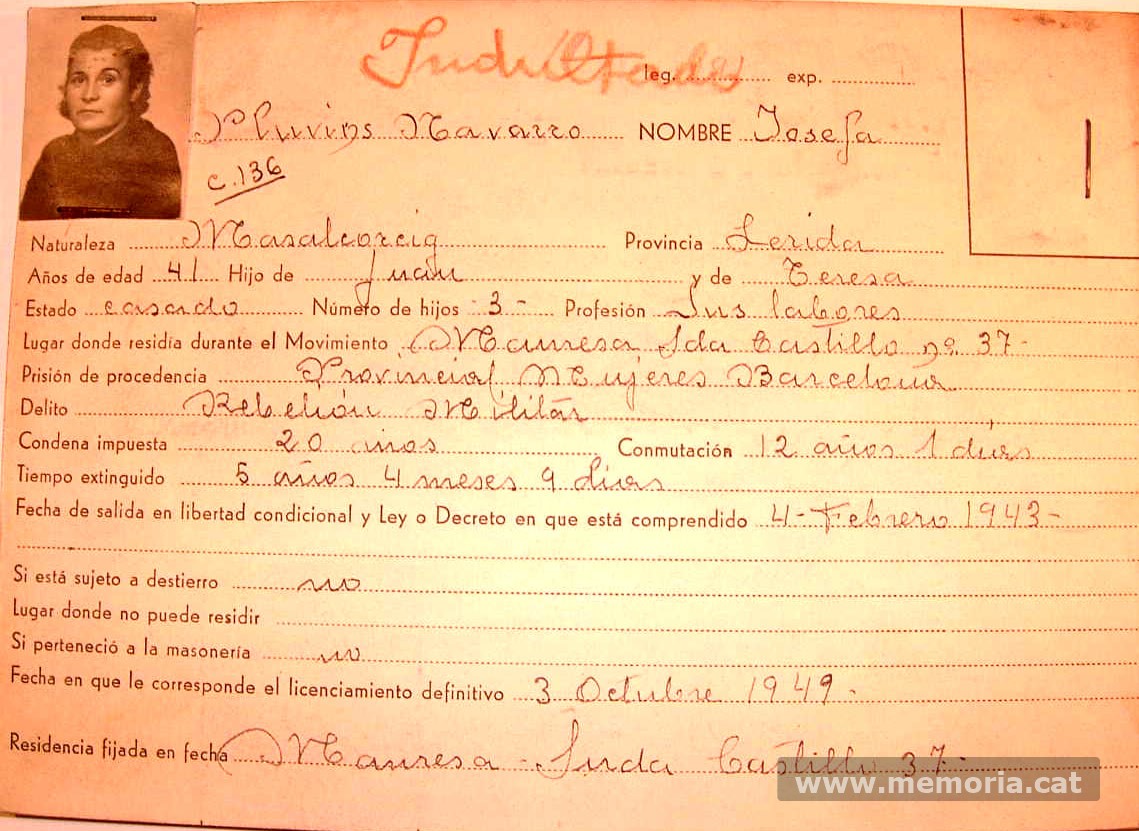 Indultada
leg. exp.
Pluvins Navarro NOMBRE Josefa
C.136
Naturaleza Masalcoreig Provincia Lerida
Años de edad 41 Hijo de Juan y de Teresa
Estado casado Número de hijos - 3 - Profesión Sus labores
Lugar donde residía durante el Movimiento Manresa Sda Castillo nº 37-
Prisión de procedencia Provincial Mujeres Barcelona
Delito Rebelión Militar
Condena impuesta 20 años Conmutación 12 años 1 dias
Tiempo extinguido 5 años 4 meses 9 dias
Fecha de salida en libertad condicional y Ley o Decreto en que está comprendido 4 - Febrero 1943 -
Si está sujeto a destierro no
Lugar donde no puede residir
Si perteneció a la masonería no
Fecha en que le corresponde el licenciamiento definitivo 3 Octubre 1949 -
Residencia fijada en fecha Manresa - Suda Castillo 37 -
www.memoria.cat